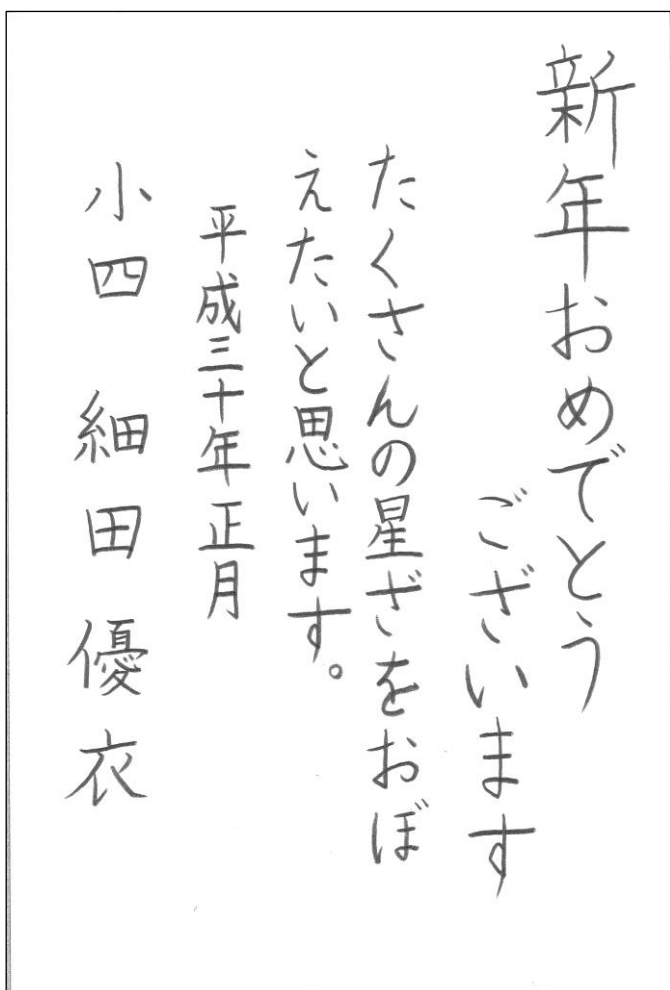 新年おめでとう
ございます
たくさんの星ざをおぼ
えたいと思います。
平成三十年正月
小四 細田優衣